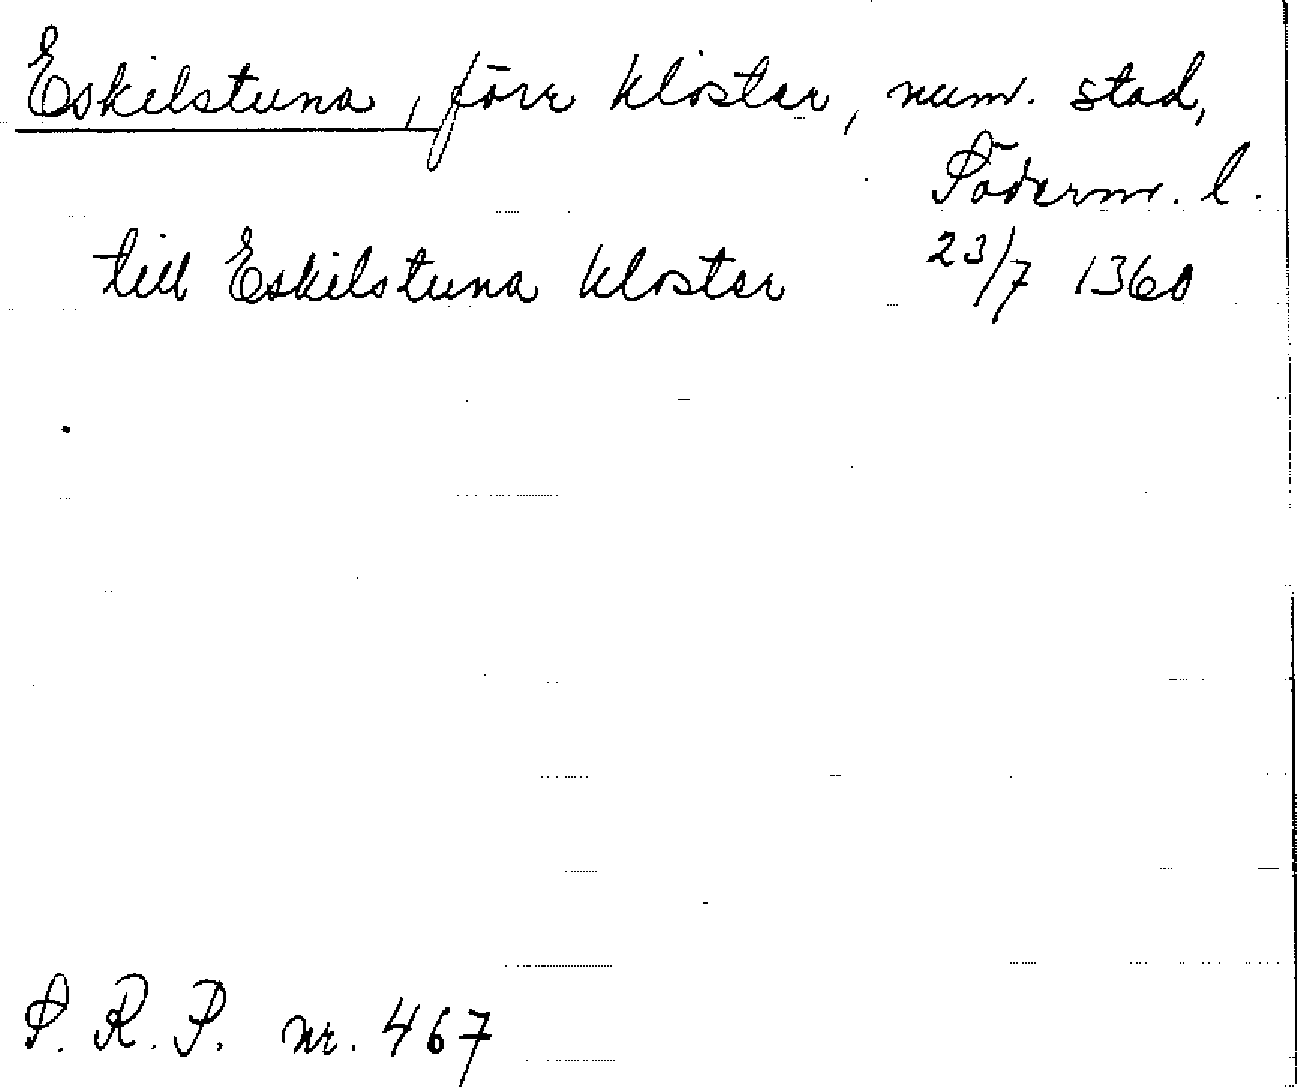 Eskilstuna, förr kloster, num. stad,
Söderm. l.
till Eskilstuna kloster 23/7 1360
S. R. P. nr. 467